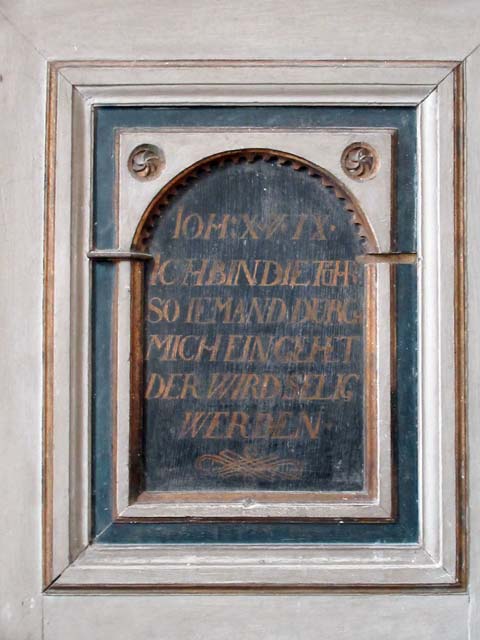 IOH: X. V. IX.
ICH BIN DIE THÜR
SO IEMAND DURG
MICH EINGEHET
DER WIRD SELIG
WERDEN